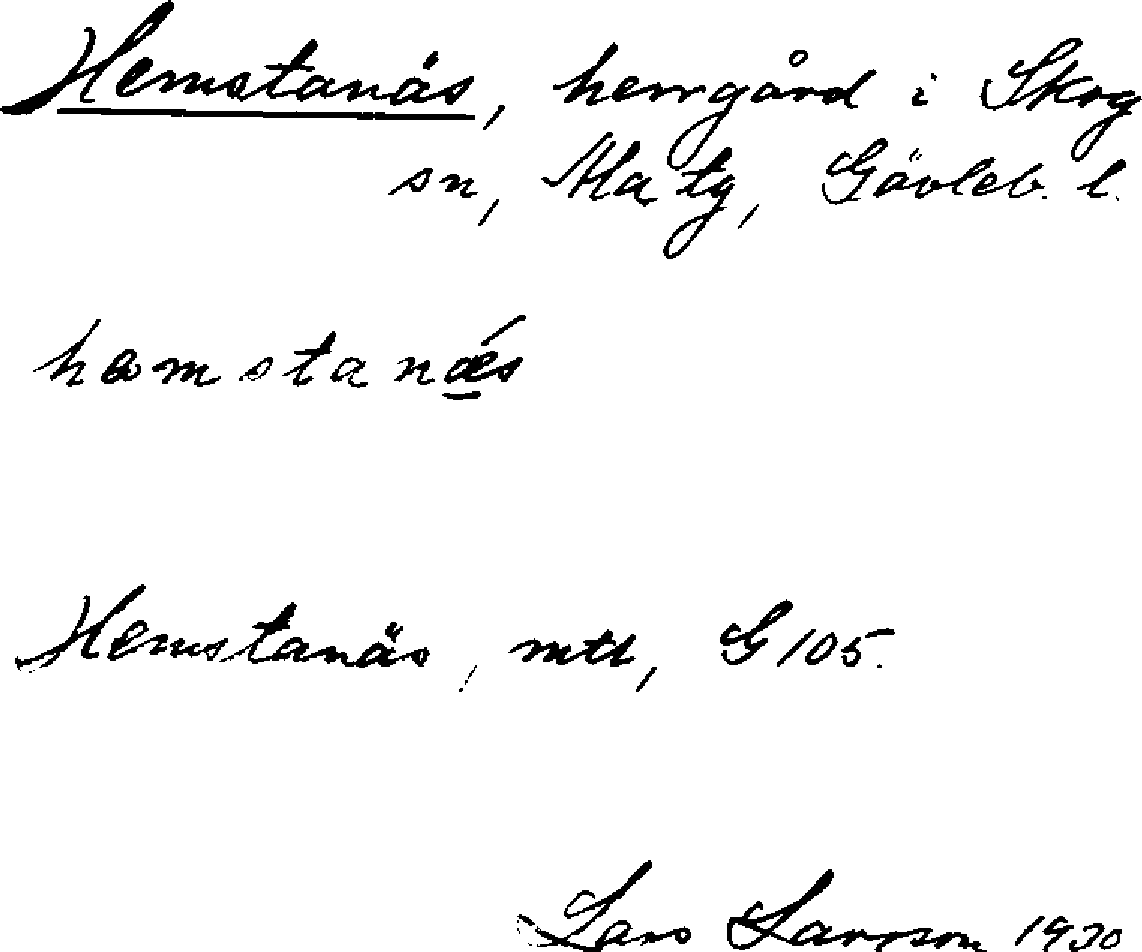 Hemstanäs, herrgård i Skog
sn, Ala tg, Gävleb. l.
hemstanǽs
Hemstanäs, mtl, G 105.
Lars Larsson 1930